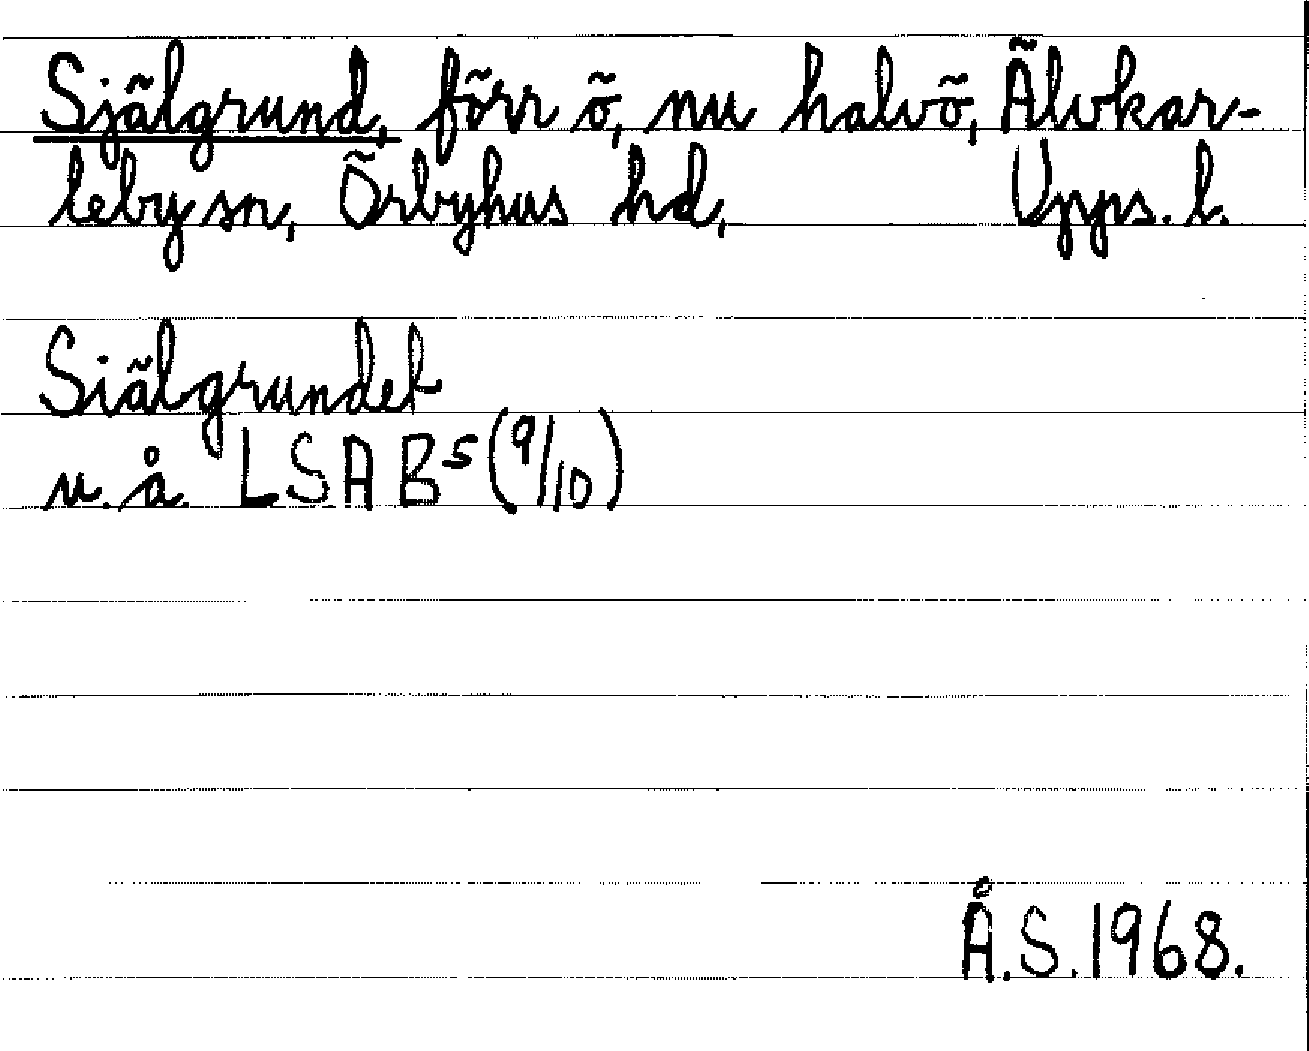 Själgrund, förr ö, nu halvö, Älvkar-
leby sn, Örbyhus hd, Upps. l.
Siälgrundet
u. å. LSA B5 (9/10)
Å.S. 1968.